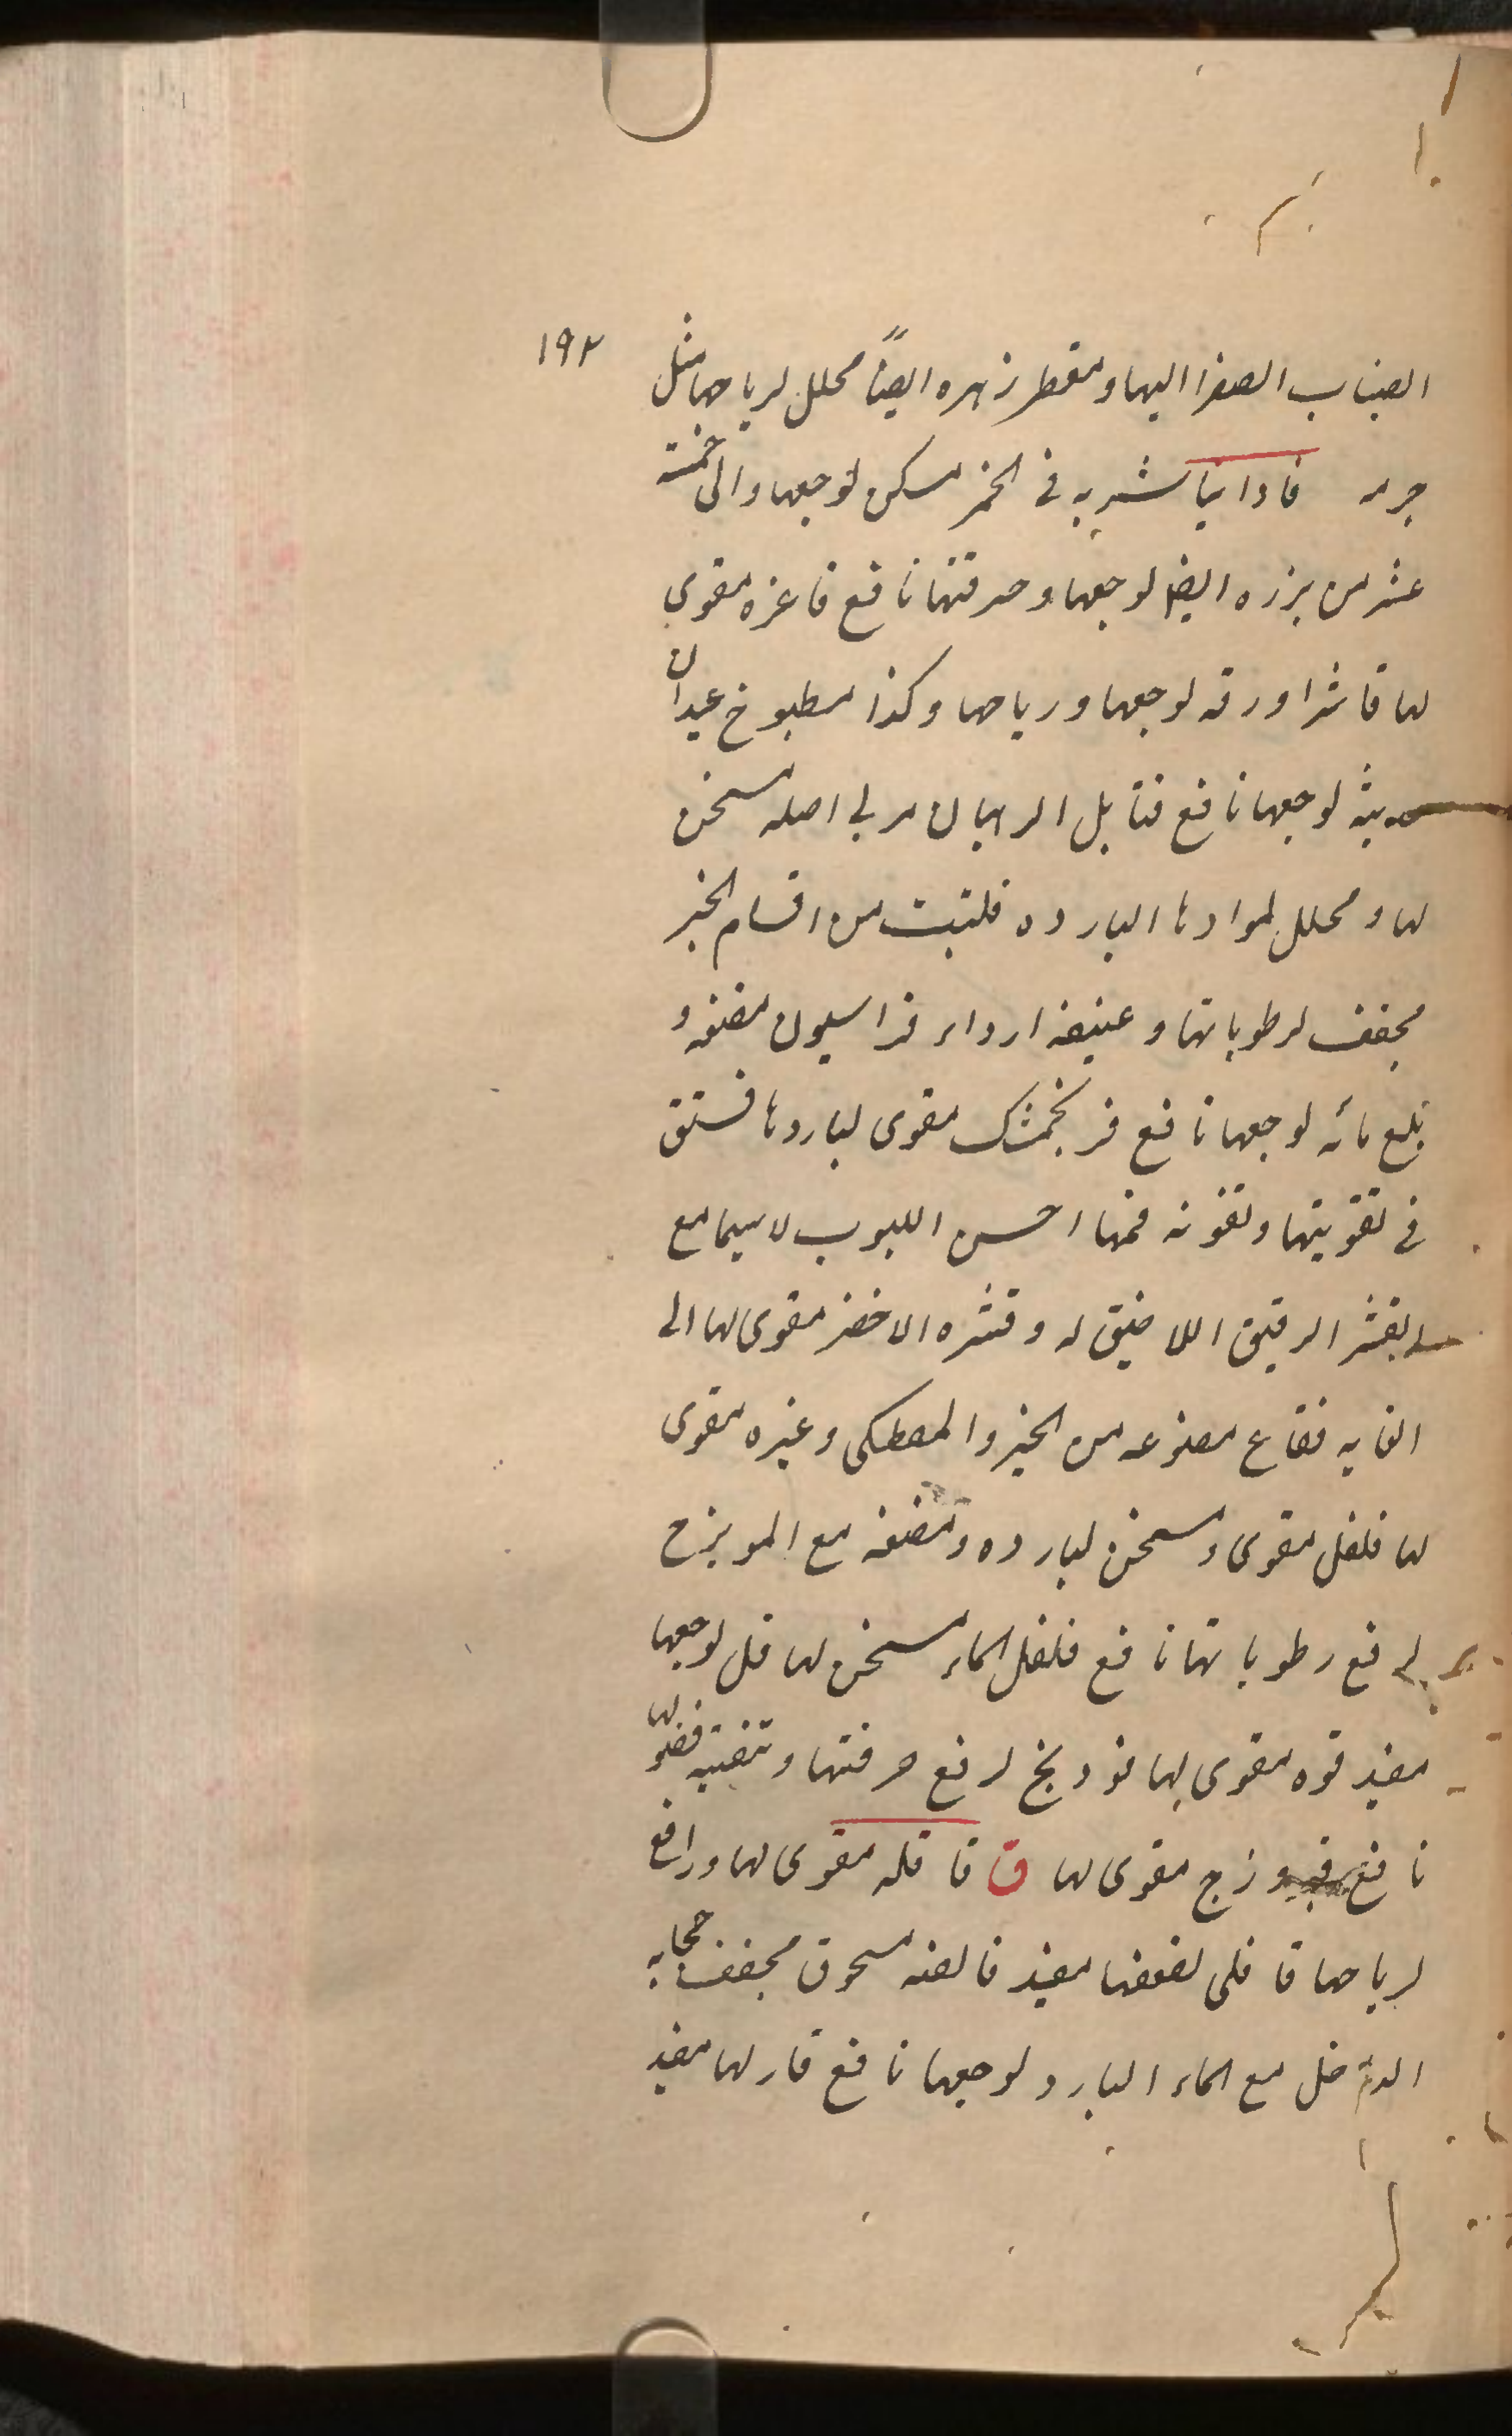 ١٩٢
انصباب الصفرا اليها ومقطر زهره ايضاً محلل لرياحها مثل
جرمه فاوانيا شربه فى الخمر مسكن لوجعها والى خمسة
عشر من بزره ايضا لوجعها وحرقتها نافع فاغره مقوى
لها فاشرا ورقه لوجعها ورياحها وكذا مطبوخ عيدان
لوجعها نافع الرهبان مربى اصله مسخن
لها ومحلل لموادها البارده من اقسام الخبز
مجفف لرطوباتها و فراسيون مضغه و
بلع مائه لوجعها نافع فرنجمشك مقوى لباردها فستق
فى تقويتها فمها احسن اللبوب لاسيما مع
القشر الرقيق اللاصق له وقشره الاخضر مقوى لها الى
الغايه فقاع مصنوعه من الخبز والمصطكى وغيره مقوى
لها فلفل مقوى ومسخن لبارده ومضغه مع المويزج
لرفع رطوباتها نافع فلفل الماء مسخن لها فل لوجعها
مفيد فوه مقوى لها فودنج لرفع حرقتها وتنقيه فضولها
نافع فيروزج مقوى لها ق قاقله مقوى لها ورافع
لرياحها قاقلى لضعفها مفيد مسحوق مجفف
الدم مع الماء البارد لوجعها نافع قار لها مفيد